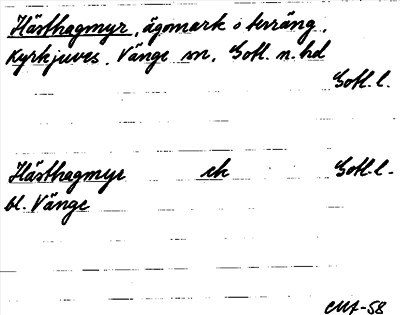 Hästhagmyr, ägomark o terräng,
Kyrkjuves, Vänge sn, Gotl. n. hd
Gotl. l.
Hästhagmyr ek Gotl. l.
bl. Vänge
CMf-58